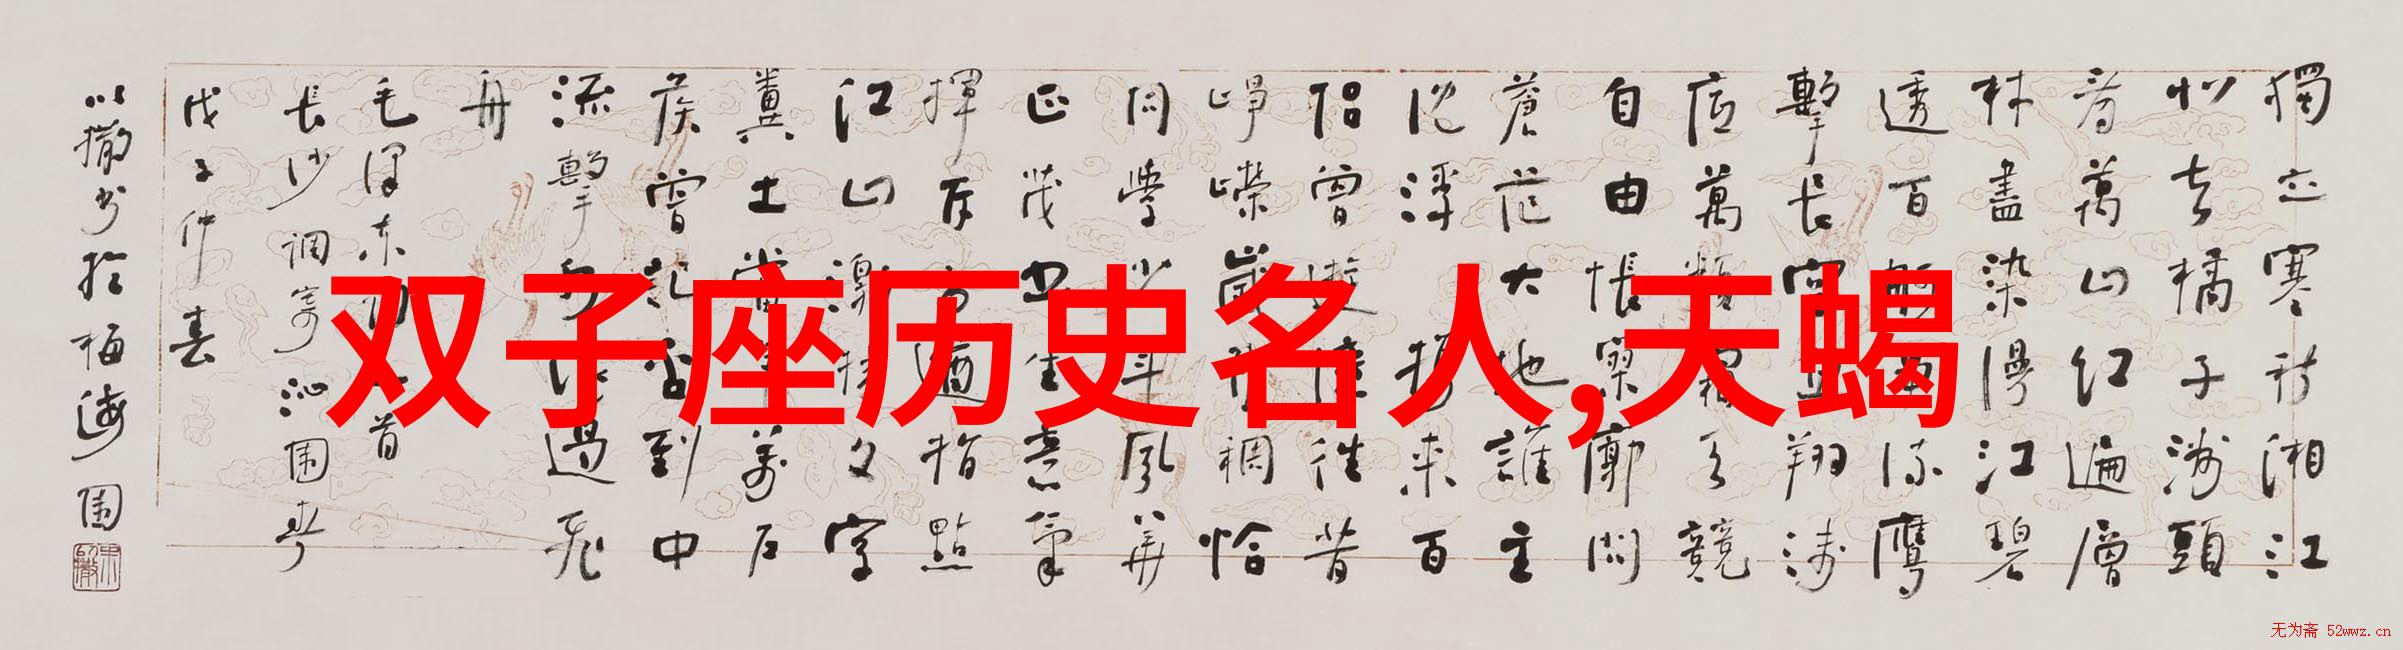 獨立寒秋湘江
北去橘子洲頭
看萬山红遍層
林盡染漫江碧
透百舸争流鹰
擊長空魚翔淺
底萬類霜天競
自由悵寥廓問
蒼茫大地誰主
沉浮 携来百
侣曾遊憶往昔
崢嶸歲月稠恰
同學少年風華
正茂書生意氣
揮斥方遒指點
江山激揚文字
糞土當年萬户
侯曾記否到中
流擊水浪遏飛
舟
毛澤东词一首
長沙 调寄沁园春
戊子仲春
以撒书於梅海園
双子座历史名人,天蝎
无为斋 52wwz.cn